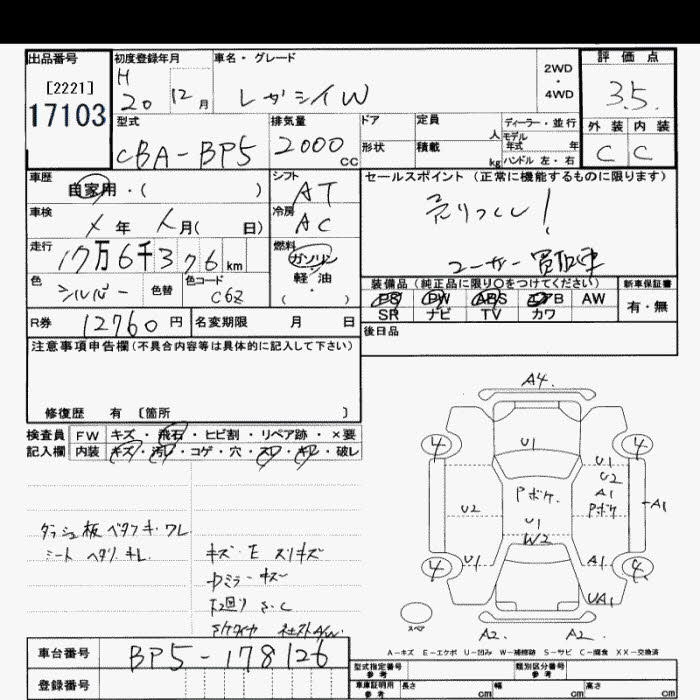 出品番号 初度登録年月 車名・グレード 評価点
[2221] H 2WD
17103 20 12月 レガシイW ・ 3.5
4WD
型式 排気量 ドア 定員 ディーラー・並行 外装 内装
CBA-BP5 2000 人 モデル年式 年 C C
cc 形状 積載 kg ハンドル 左・右
車歴 シフト セールスポイント (正常に機能するものに限ります)
自家用・( ) AT 売りつくし!
車検 冷房
年 月( 日) AC
走行 燃料 ユーザー買取車
17万6千376km ガソリン
色 色替 色コード 軽・油 装備品 (純正品に限り○をつけてください) 新車保証書
シルバー C6Z ( ・ ) PS PW ABS エアB AW 有・無
SR ナビ TV カワ
R券 12760円 名変期限 月 日 後日品
注意事項申告欄 (不具合内容等は具体的に記入して下さい)
修復歴 有 [箇所 ]
検査員 FW キズ・飛石・ヒビ割・リペア跡・×要
記入欄 内装 キズ・汚レ・コゲ・穴・スレ・キレ・破レ
A4
4 U1 4
U1
U2
Pボケ A1
U2 Pボケ A1
U1
W2
U1 A1
4 4
UA1
A2 A2
スペア
ダッシュ板 ベタツキ・ワレ
シート ヘタリ キレ
キズ・E スリキズ
中ミラーキズ
下廻り S.C
A-キズ E-エクボ U-凹み W-補修跡 S-サビ C-腐食 XX-交換済
車台番号 BP5-178126 型式指定番号 参考 類別区分番号 参考
登録番号 車庫証明用 参考 長さ cm 幅 cm 高さ cm